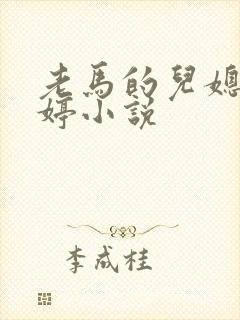 老馬的兒媳
婷小説
李成桂